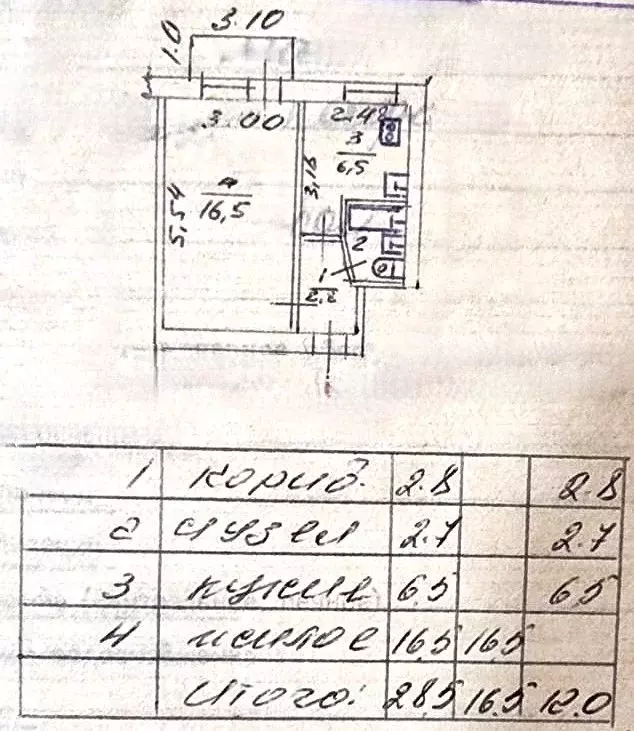 3.10
1.0
3.00
2.48
3
6,5
3,16
5,54
4
16,5
2
1
2,2
Т
Т
Т
1 корид. 2.8 2.8
2 с/узел 2.7 2.7
3 кухня 6.5 6.5
4 жилое 16.5 16.5
Итого: 28.5 16.5 12.0